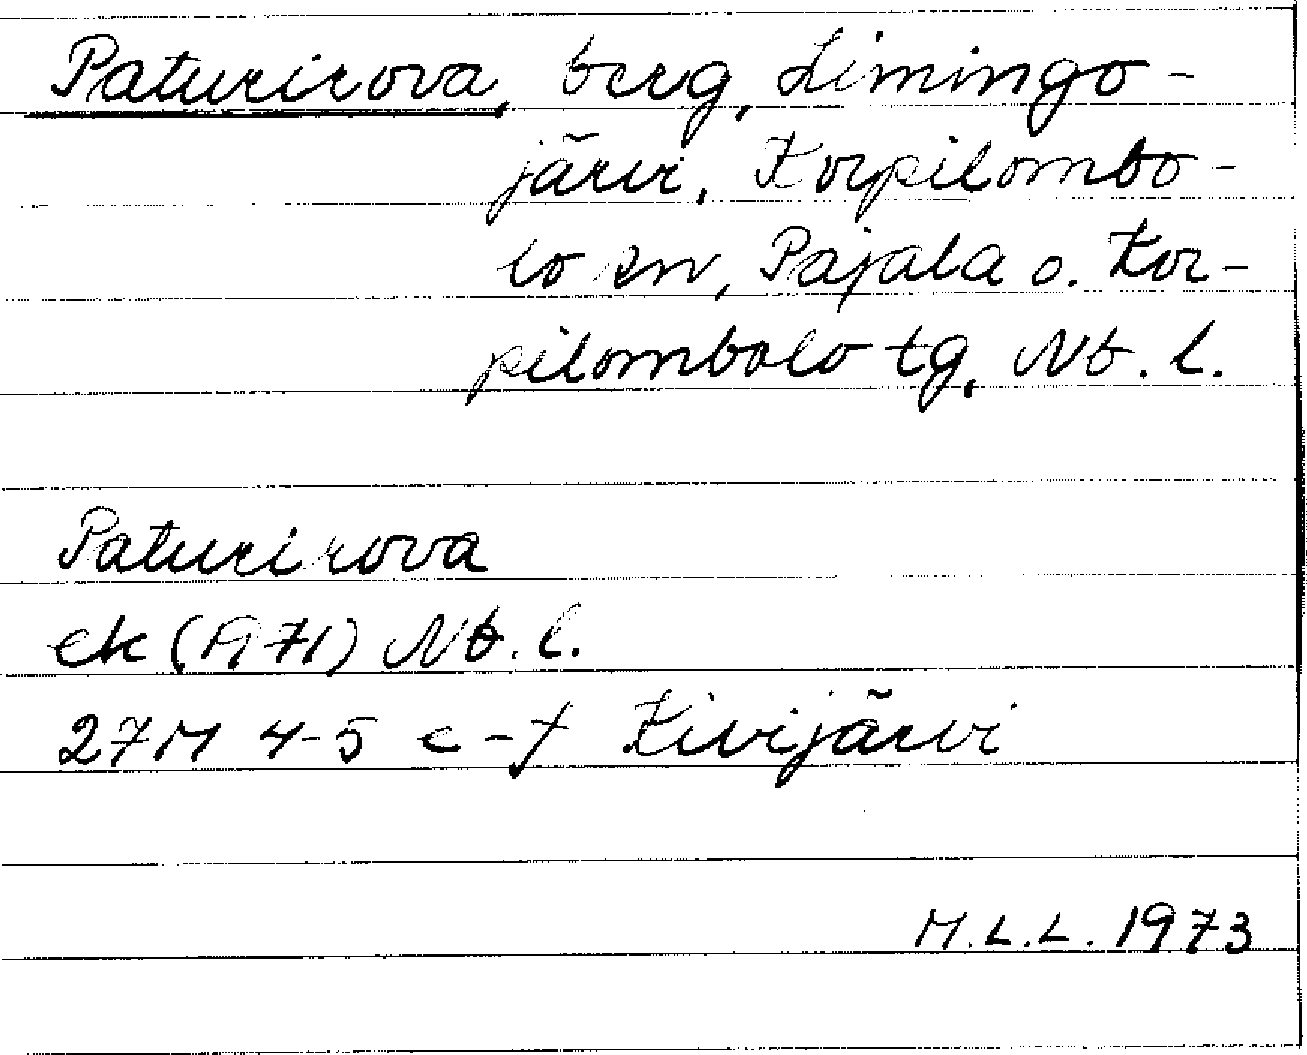 Paturirova, berg, Limingo-
järvi, Korpilombo-
lo sn, Pajala o. Kor-
pilombolo tg, Nb. l.
Paturirova
ek (1971) Nb. l.
27M 4-5 e-f Kivijärvi
M.L.L. 1973